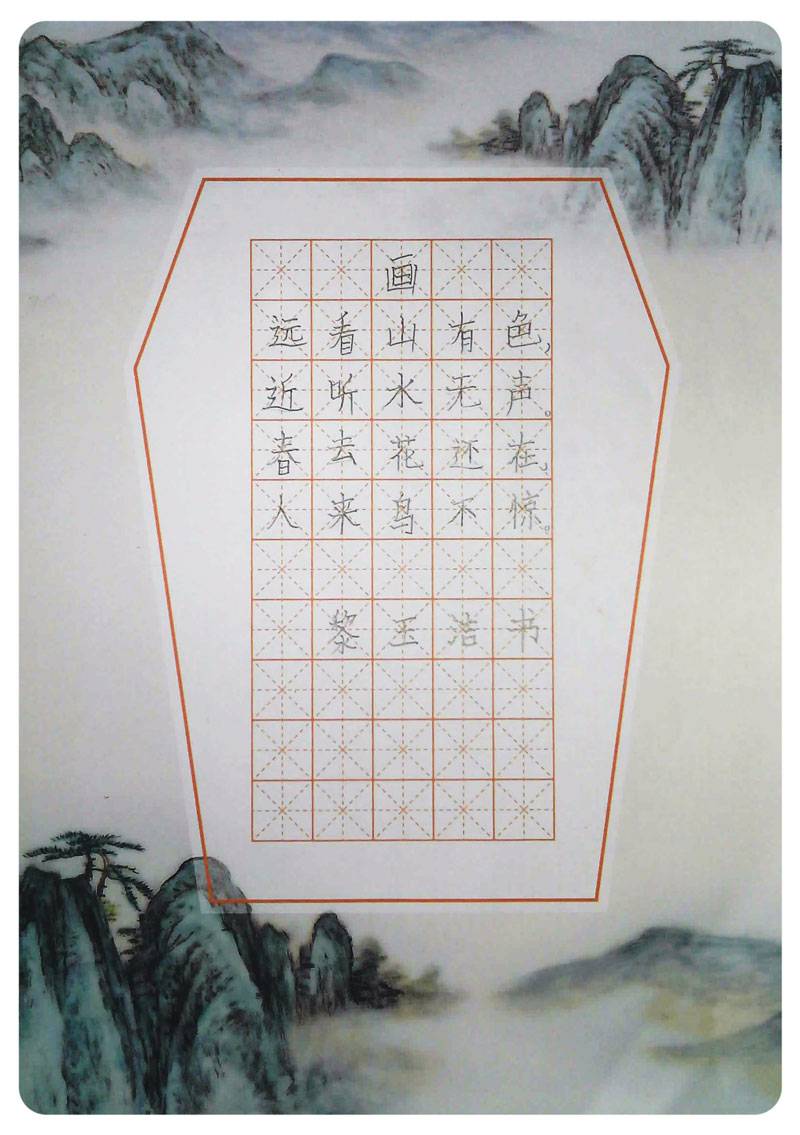 画
远看山有色，
近听水无声。
春去花还在，
人来鸟不惊。
黎玉洁书